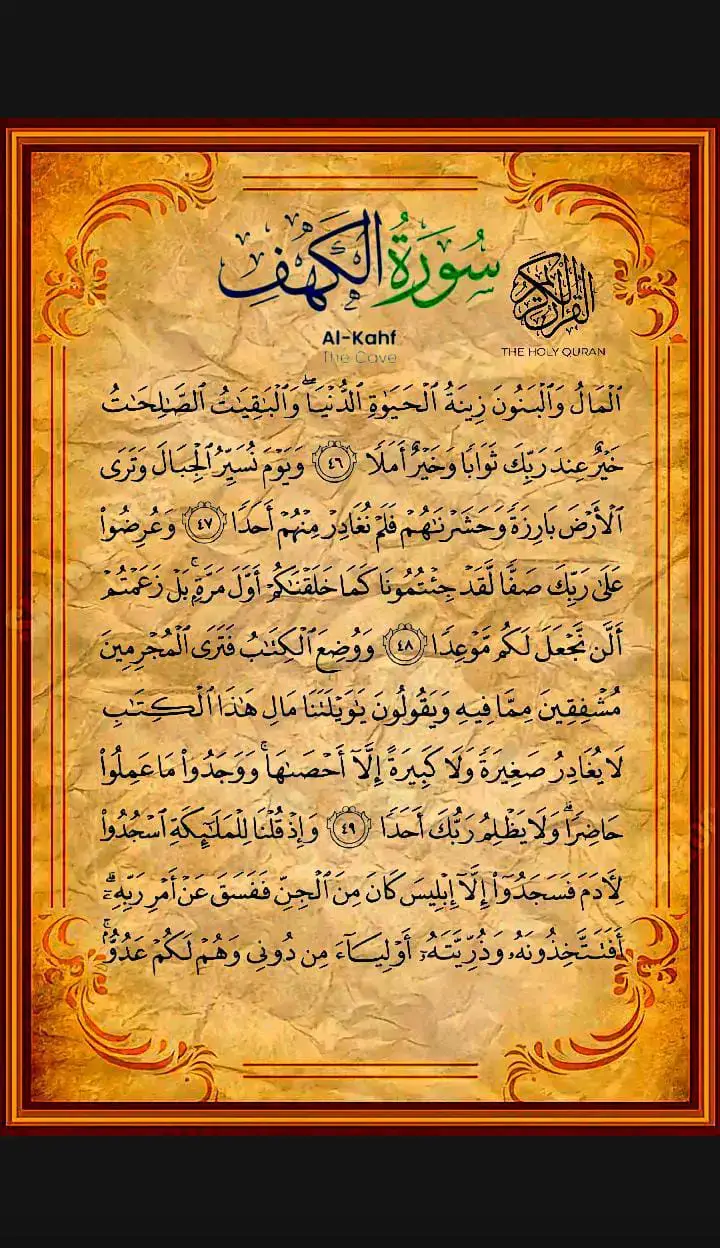 سُورَةُ الكَهْفِ
القرآن الكريم
Al-Kahf
The Cave
THE HOLY QURAN
ٱلۡمَالُ وَٱلۡبَنُونَ زِينَةُ ٱلۡحَيَوٰةِ ٱلدُّنۡيَاۖ وَٱلۡبَٰقِيَٰتُ ٱلصَّٰلِحَٰتُ
خَيۡرٌ عِندَ رَبِّكَ ثَوَابٗا وَخَيۡرٌ أَمَلٗا ٤٦ وَيَوۡمَ نُسَيِّرُ ٱلۡجِبَالَ وَتَرَى
ٱلۡأَرۡضَ بَارِزَةٗ وَحَشَرۡنَٰهُمۡ فَلَمۡ نُغَادِرۡ مِنۡهُمۡ أَحَدٗا ٤٧ وَعُرِضُواْ
عَلَىٰ رَبِّكَ صَفّٗا لَّقَدۡ جِئۡتُمُونَا كَمَا خَلَقۡنَٰكُمۡ أَوَّلَ مَرَّةِۭۚ بَلۡ زَعَمۡتُمۡ
أَلَّن نَّجۡعَلَ لَكُم مَّوۡعِدٗا ٤٨ وَوُضِعَ ٱلۡكِتَٰبُ فَتَرَى ٱلۡمُجۡرِمِينَ
مُشۡفِقِينَ مِمَّا فِيهِ وَيَقُولُونَ يَٰوَيۡلَتَنَا مَالِ هَٰذَا ٱلۡكِتَٰبِ
لَا يُغَادِرُ صَغِيرَةٗ وَلَا كَبِيرَةً إِلَّآ أَحۡصَىٰهَاۚ وَوَجَدُواْ مَا عَمِلُواْ
حَاضِرٗاۗ وَلَا يَظۡلِمُ رَبُّكَ أَحَدٗا ٤٩ وَإِذۡ قُلۡنَا لِلۡمَلَٰٓئِكَةِ ٱسۡجُدُواْ
لِأٓدَمَ فَسَجَدُوٓاْ إِلَّآ إِبۡلِيسَ كَانَ مِنَ ٱلۡجِنِّ فَفَسَقَ عَنۡ أَمۡرِ رَبِّهِۦٓۗ
أَفَتَتَّخِذُونَهُۥ وَذُرِّيَّتَهُۥٓ أَوۡلِيَآءَ مِن دُونِي وَهُمۡ لَكُمۡ عَدُوُّۢۚ